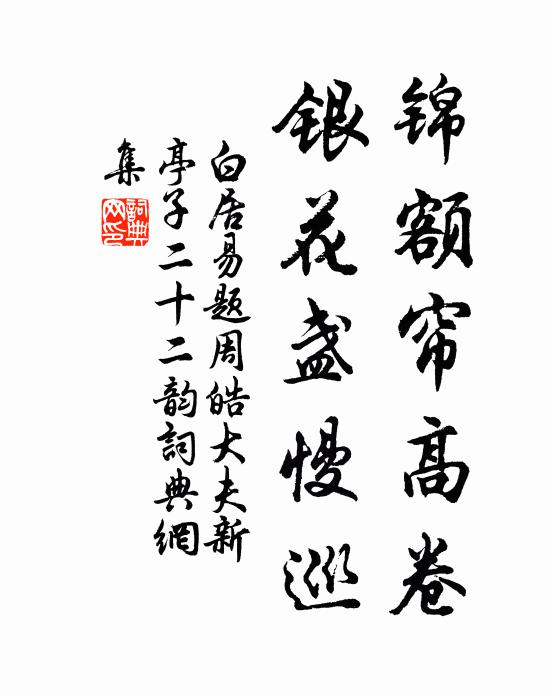 锦额帘高卷
银花盏慢巡
白居易题周皓大夫新
亭子二十二韵詞典網
集
詞典
网印